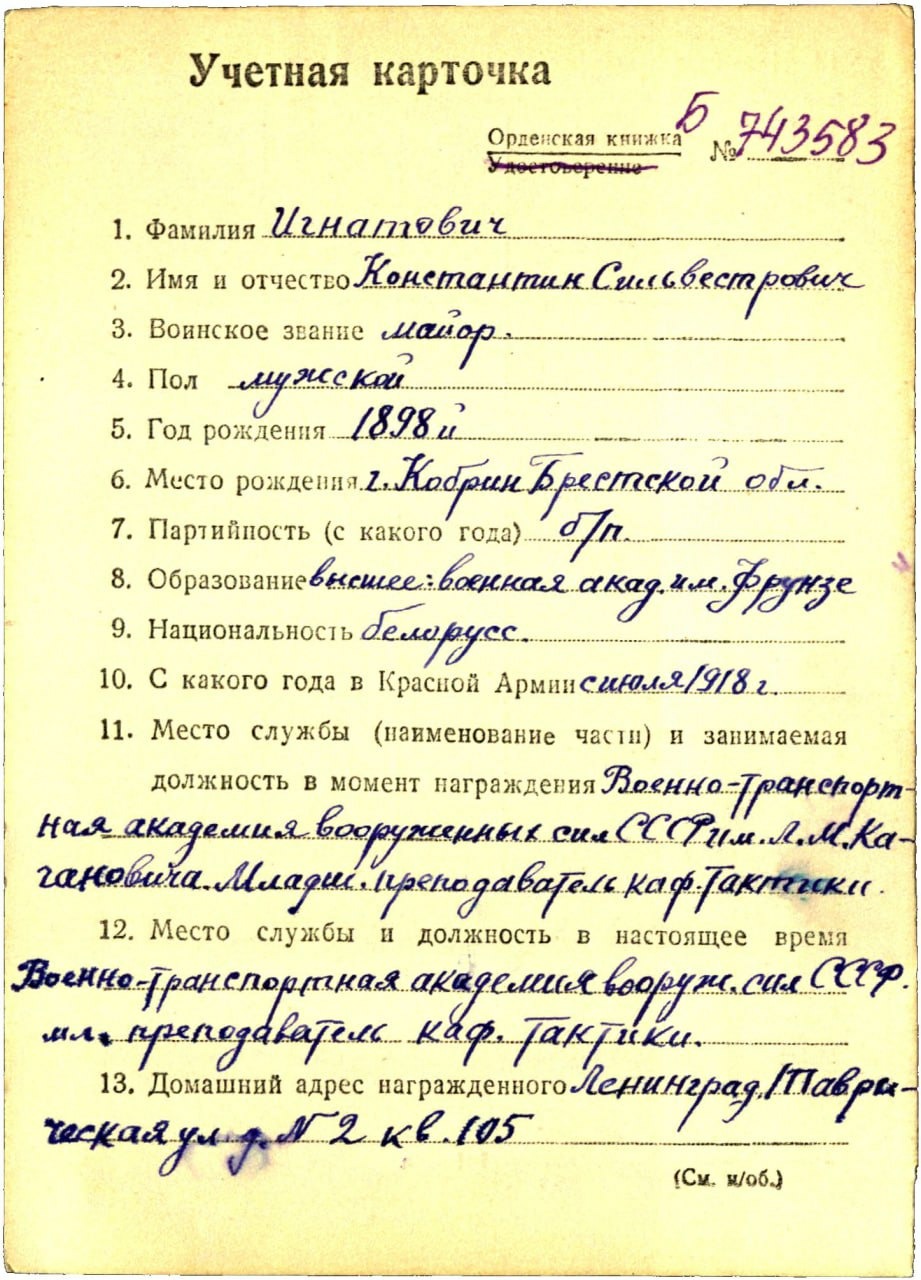 Учетная карточка
Орденская книжка Б № 743583
Удостоверение
1. Фамилия Игнатович
2. Имя и отчество Константин Сильвестрович
3. Воинское звание майор.
4. Пол мужской
5. Год рождения 1898 й
6. Место рождения г. Кобрин Брестской обл.
7. Партийность (с какого года) б/п.
8. Образование высшее: военная акад. им. Фрунзе
9. Национальность белорусс.
10. С какого года в Красной Армии с июля 1918 г.
11. Место службы (наименование части) и занимаемая
должность в момент награждения Военно-транспорт-
ная академия вооруженных сил СССР им. Л. М. Ка-
гановича. Младш. преподаватель каф. тактики.
12. Место службы и должность в настоящее время
Военно-транспортная академия вооруж. сил СССР.
мл. преподаватель каф. тактики.
13. Домашний адрес награжденного Ленинград, Таври-
ческая ул. д. N 2 кв. 105
(См. н/об.)